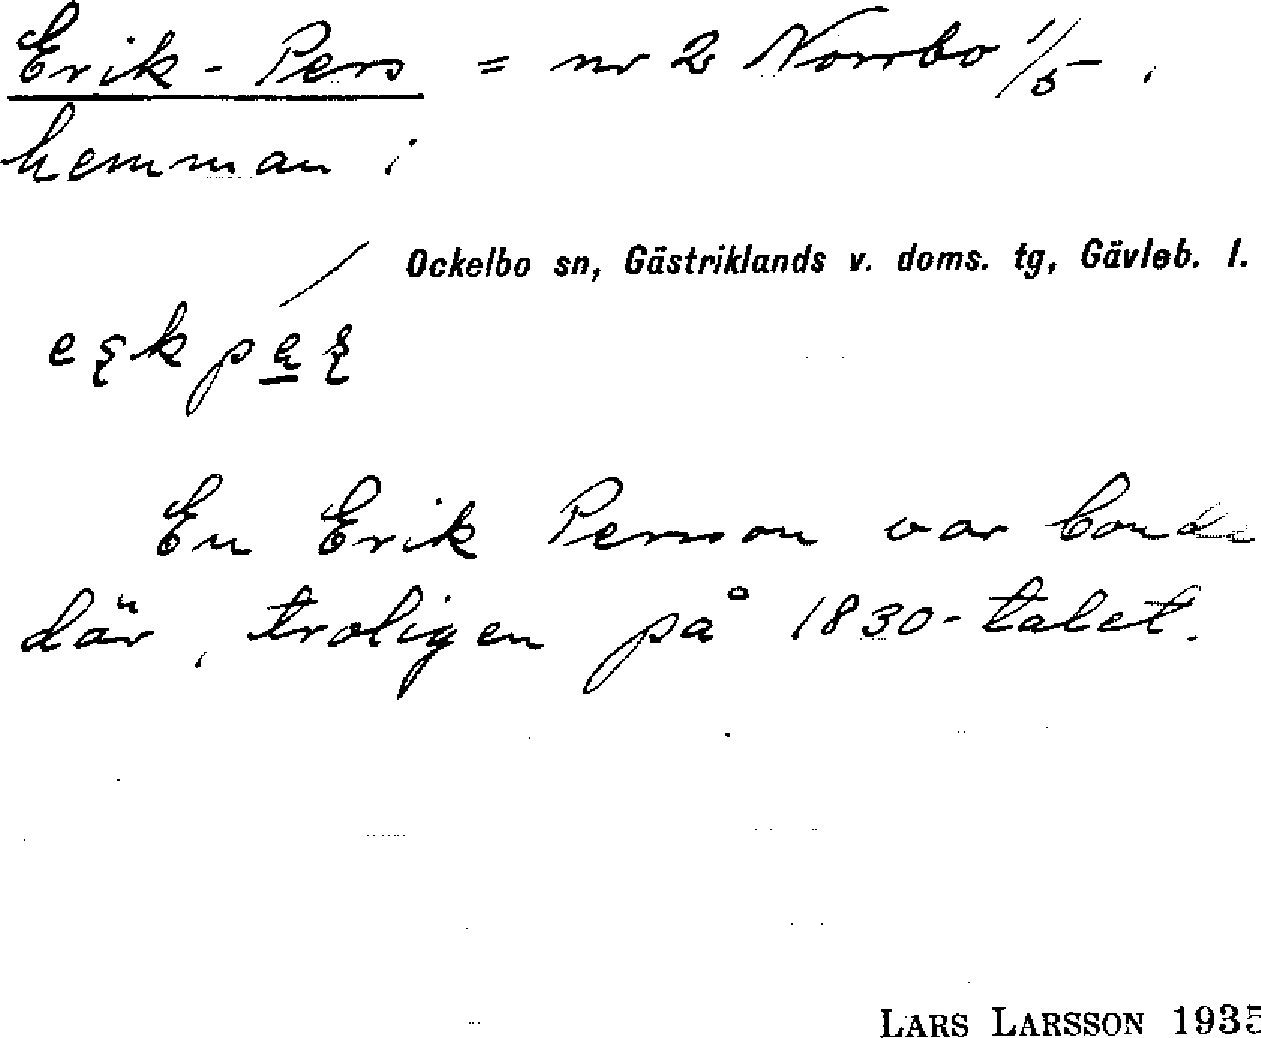 Erik-Pers = nr 2 Norrbo 1/5,
hemman i
Ockelbo sn, Gästriklands v. doms. tg, Gävleb. l.
En Erik Persson var bonde
där, troligen på 1830-talet.
LARS LARSSON 1935